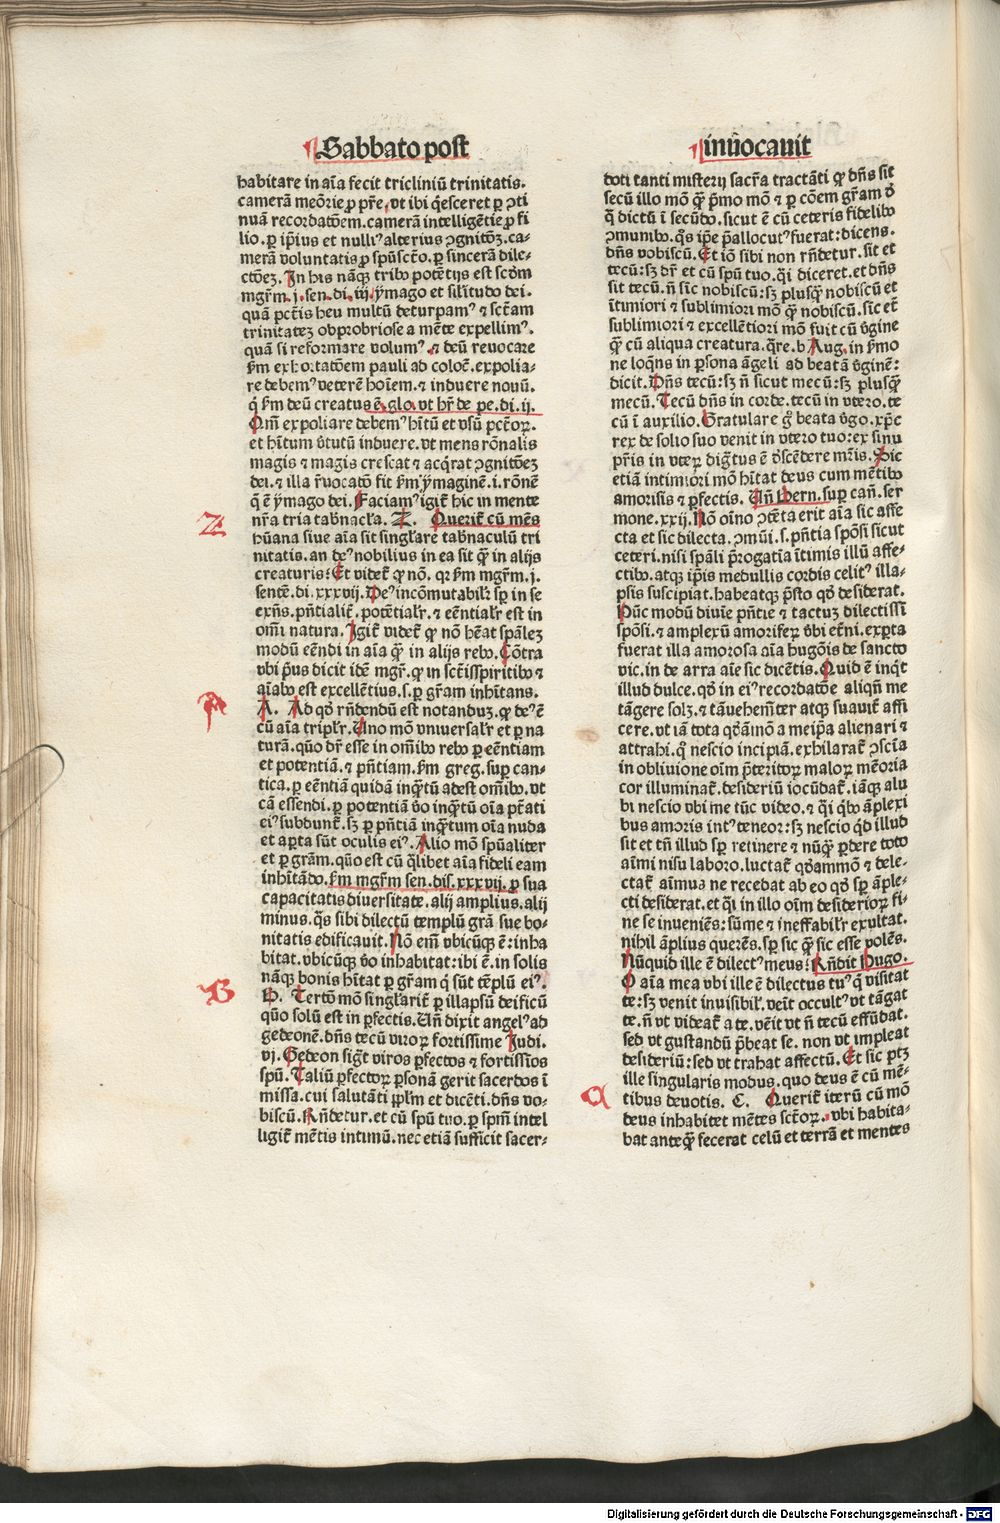 Sabbato post
habitare in aīa fecit tricliniū trinitatis.
camerā meōrie ꝓ pr̄e. vt ibi q̄esceret ꝑ ꝯti
nuā recordatōem. camerā intelligētie ꝓ fi
lio. ꝑ ip̄ius et nulliꝰ alterius ꝯgnitōꝫ. ca-
merā voluntatis ꝓ spūscto. ꝑ sincerā dile-
ctōeꝫ. In his nāqꝫ tribꝰ potētijs est scd̄m
mgr̄m. j. sen. di. iij. ymago et silitudo dei.
quā pctīs heu multū deturpamꝰ ⁊ sctām
trinitateꝫ obprobriose a mēte expellimꝰ.
quā si reformare volumꝰ. ⁊ deū reuocare
ẜm exhortatōem pauli ad coloē. expolia-
re debemꝰ veterē hoīem. ⁊ induere nouū.
q̄ ẜm deū creatus ē. glo. vt hr̄ de pe. di. ij.
Qm̄ expoliare debemꝰ hītū et vsū pctōꝝ.
et hītum v̄tutū induere. vt mens rōnalis
magis ⁊ magis crescat ⁊ acq̄rat ꝯgnitōeꝫ
dei. ⁊ illa r̄uocatō fit ẜm ymaginē. i. rōnē
q̄ ē ymago dei. Faciamꝰ igit̄ hic in mente
nr̄a tria tabnacl̄a. Z. Querit̄ cū mēs
hūana siue aīa sit singl̄are tabnaculū tri
nitatis. an deꝰ nobilius in ea sit q̄ꝫ in alijs
creaturis? Et videt̄ ꝙ nō. qꝛ ẜm mgr̄m. j.
sentē. di. xxxvij. Deꝰ incōmutabilr̄ sꝑ in se
exn̄s. pn̄tialit̄. potētialr̄. ⁊ eēntialr̄ est in
om̄i natura. Igit̄ videt̄ ꝙ nō hēat spāleꝫ
modū eēndi in aīa q̄ꝫ in alijs rebꝰ. Cōtra
vbi p̄us dicit idē mgr̄. ꝙ in sctīsspiritibꝰ ⁊
aīabꝰ est excellētius. s. ꝑ gr̄am inhītans.
A. Ad qd̄ rn̄dendū est notanduꝫ. ꝙ deꝰ ē
cū aīa triplr̄. Uno mō vniuersalr̄ et ꝑ na
turā. quō dr̄ esse in om̄ibꝰ rebꝰ ꝑ eēntiam
et potentiā. ⁊ pn̄tiam. ẜm greg. suꝑ can-
tica. ꝑ eēntiā quidā inqꝫtū adest om̄ibꝰ. vt
cā essendi. ꝑ potentiā v̄o inqꝫtū oīa ptāti
eiꝰ subdunt̄. sꝫ ꝑ pn̄tiā inqꝫtum oīa nuda
et aꝑta sūt oculis eiꝰ. Alio mō spūaliter
et ꝑ grām. quō est cū q̄libet aīa fideli eam
inhītādo. ẜm mgr̄m sen. dis. xxxvij. ꝑ sua
capacitatis diuersitate. alij amplius. alij
minus. q̄s sibi dilectū templū grā sue bo-
nitatis edificauit. Nō eīn vbicūqꝫ ē: inha
bitat. vbicūqꝫ v̄o inhabitat: ibi ē. in solis
nāqꝫ bonis hītat ꝑ gr̄am q̄ sūt tēplū eiꝰ.
B. Tertō mō singl̄arit̄ ꝑ illapsū deificū
quō solū est in ꝑfectis. Un̄ dixit angelꝰ ad
gedeonē. dn̄s tecū viroꝝ fortissime Judi.
vj. Gedeon sigt̄ viros ꝑfectos ⁊ fortissīos
spū. Taliū ꝑfectoꝝ ꝑsonā gerit sacerdos ī
missa. cui salutāti ppl̄m et dicēti. dn̄s vo-
biscū. Rn̄detur. et cū spū tuo. ꝑ spm̄ intel
ligit̄ mētis intimū. nec etiā sufficit sacer-
inuocauit
doti tanti misterij sacr̄a tractāti ꝙ dn̄s sit
secū illo mō q̄ꝫ p̄mo mō ⁊ ꝑ cōem gr̄am d̄
q̄ dictū ī secūdo. sicut ē cū ceteris fidelibꝰ
ꝯmunibꝰ. q̄s ip̄e p̄allocutꝰ fuerat: dicens.
dn̄s vobiscū. Et iō sibi non rn̄detur. sit et
tecū: sꝫ dr̄ et cū spū tuo. q̄i diceret. et dn̄s
sit tecū. n̄ sic nobiscū: sꝫ plusqꝫ nobiscū et
ītimiori ⁊ sublimiori mō q̄ꝫ nobiscū. sic et̄
sublimiori ⁊ excellētiori mō fuit cū v̄gine
q̄ꝫ cū aliqua creatura. q̄re. b Aug. in ẜmo
ne loqn̄s in ꝑsona āgeli ad beatā v̄ginē:
dicit. Dn̄s tecū: sꝫ n̄ sicut mecū: sꝫ plusqꝫ
mecū. Tecū dn̄s in corde. tecū in vtero. te
cū ī auxilio. Gratulare g̊ beata v̄go. xp̄c
rex de solio suo venit in vtero tuo: ex sinu
pr̄is in vteꝝ dig̃tus ē d̄scēdere mr̄is. Hic
etiā intimiori mō hītat deus cum mētibꝰ
amorisis ⁊ ꝑfectis. Un̄ Bern. suꝑ can̄. ser
mone. xxij. Nō oīno ꝯtēta erit aīa sic affe
cta et sic dilecta. ꝯmūi. s. pn̄tia spōsi sicut
ceteri. nisi spāli p̄rogatīa ītimis illū affe-
ctibꝰ. atqꝫ ip̄is medullis cordis celitꝰ illa-
psis suscipiat. habeatqꝫ p̄sto qd̄ desiderat.
Hūc modū diuīe pn̄tie ⁊ tactuꝫ dilectissi
spōsi. ⁊ amplexū amoriferꝝ v̄bi eťni. exꝑta
fuerat illa amorosa aīa hugōis de sancto
vic. in de arra aīe sic dicētis. Quid ē inq̄t
illud dulce. qd̄ in eiꝰ recordatōe aliqn̄ me
tāgere solꝫ. ⁊ tā vehemīter atqꝫ suauit̄ affi
cere. vt iā tota qd̄āmō a meip̄a alienari ⁊
attrahi. qͦ nescio incipiā. exhilarat̄ ꝯscīa
in obliuione oīm p̄teritoꝝ maloꝝ mēoria
cor illuminat̄. desideriū iocūdat̄. iāqꝫ alu
bi nescio vbi me tūc video. ⁊ q̄i q̄bꝰ āplexi
bus amoris intꝰ teneor: sꝫ nescio qd̄ illud
sit et tn̄ illud sꝑ retinere ⁊ nūqꝫ ꝑdere toto
aīmi nisu laboro. luctat̄ qd̄āmō ⁊ dele-
ctat̄ aīmus ne recedat ab eo qd̄ sꝑ āple-
cti desiderat. et q̄i in illo oīm desiderioꝝ fi-
ne se inueniēs: sūme ⁊ ineffabilr̄ exultat.
nihil āplius querēs. sꝑ sic q̄ꝫ sic esse volēs.
Nūquid ille ē dilectꝰ meus? Rn̄dit Hugo.
O aīa mea vbi ille ē dilectus tuꝰ q̄ visitat
te: sꝫ venit inuisibilr̄. veīt occultꝰ vt tāgat
te. n̄ vt videat̄ a te. vēit vt n̄ tecū effūdat.
sed vt gustandū p̄beat se. non vt impleat
desideriū: sed vt trahat affectū. Et sic ptꝫ
ille singularis modus. quo deus ē cū mē-
tibus deuotis. C. Querit̄ iterū cū mō
deus inhabitet mētes sctōꝝ. vbi habita-
bat anteq̄ꝫ fecerat celū et terrā et mentes
Z
A
B
C
Digitalisierung gefördert durch die Deutsche Forschungsgemeinschaft - DFG